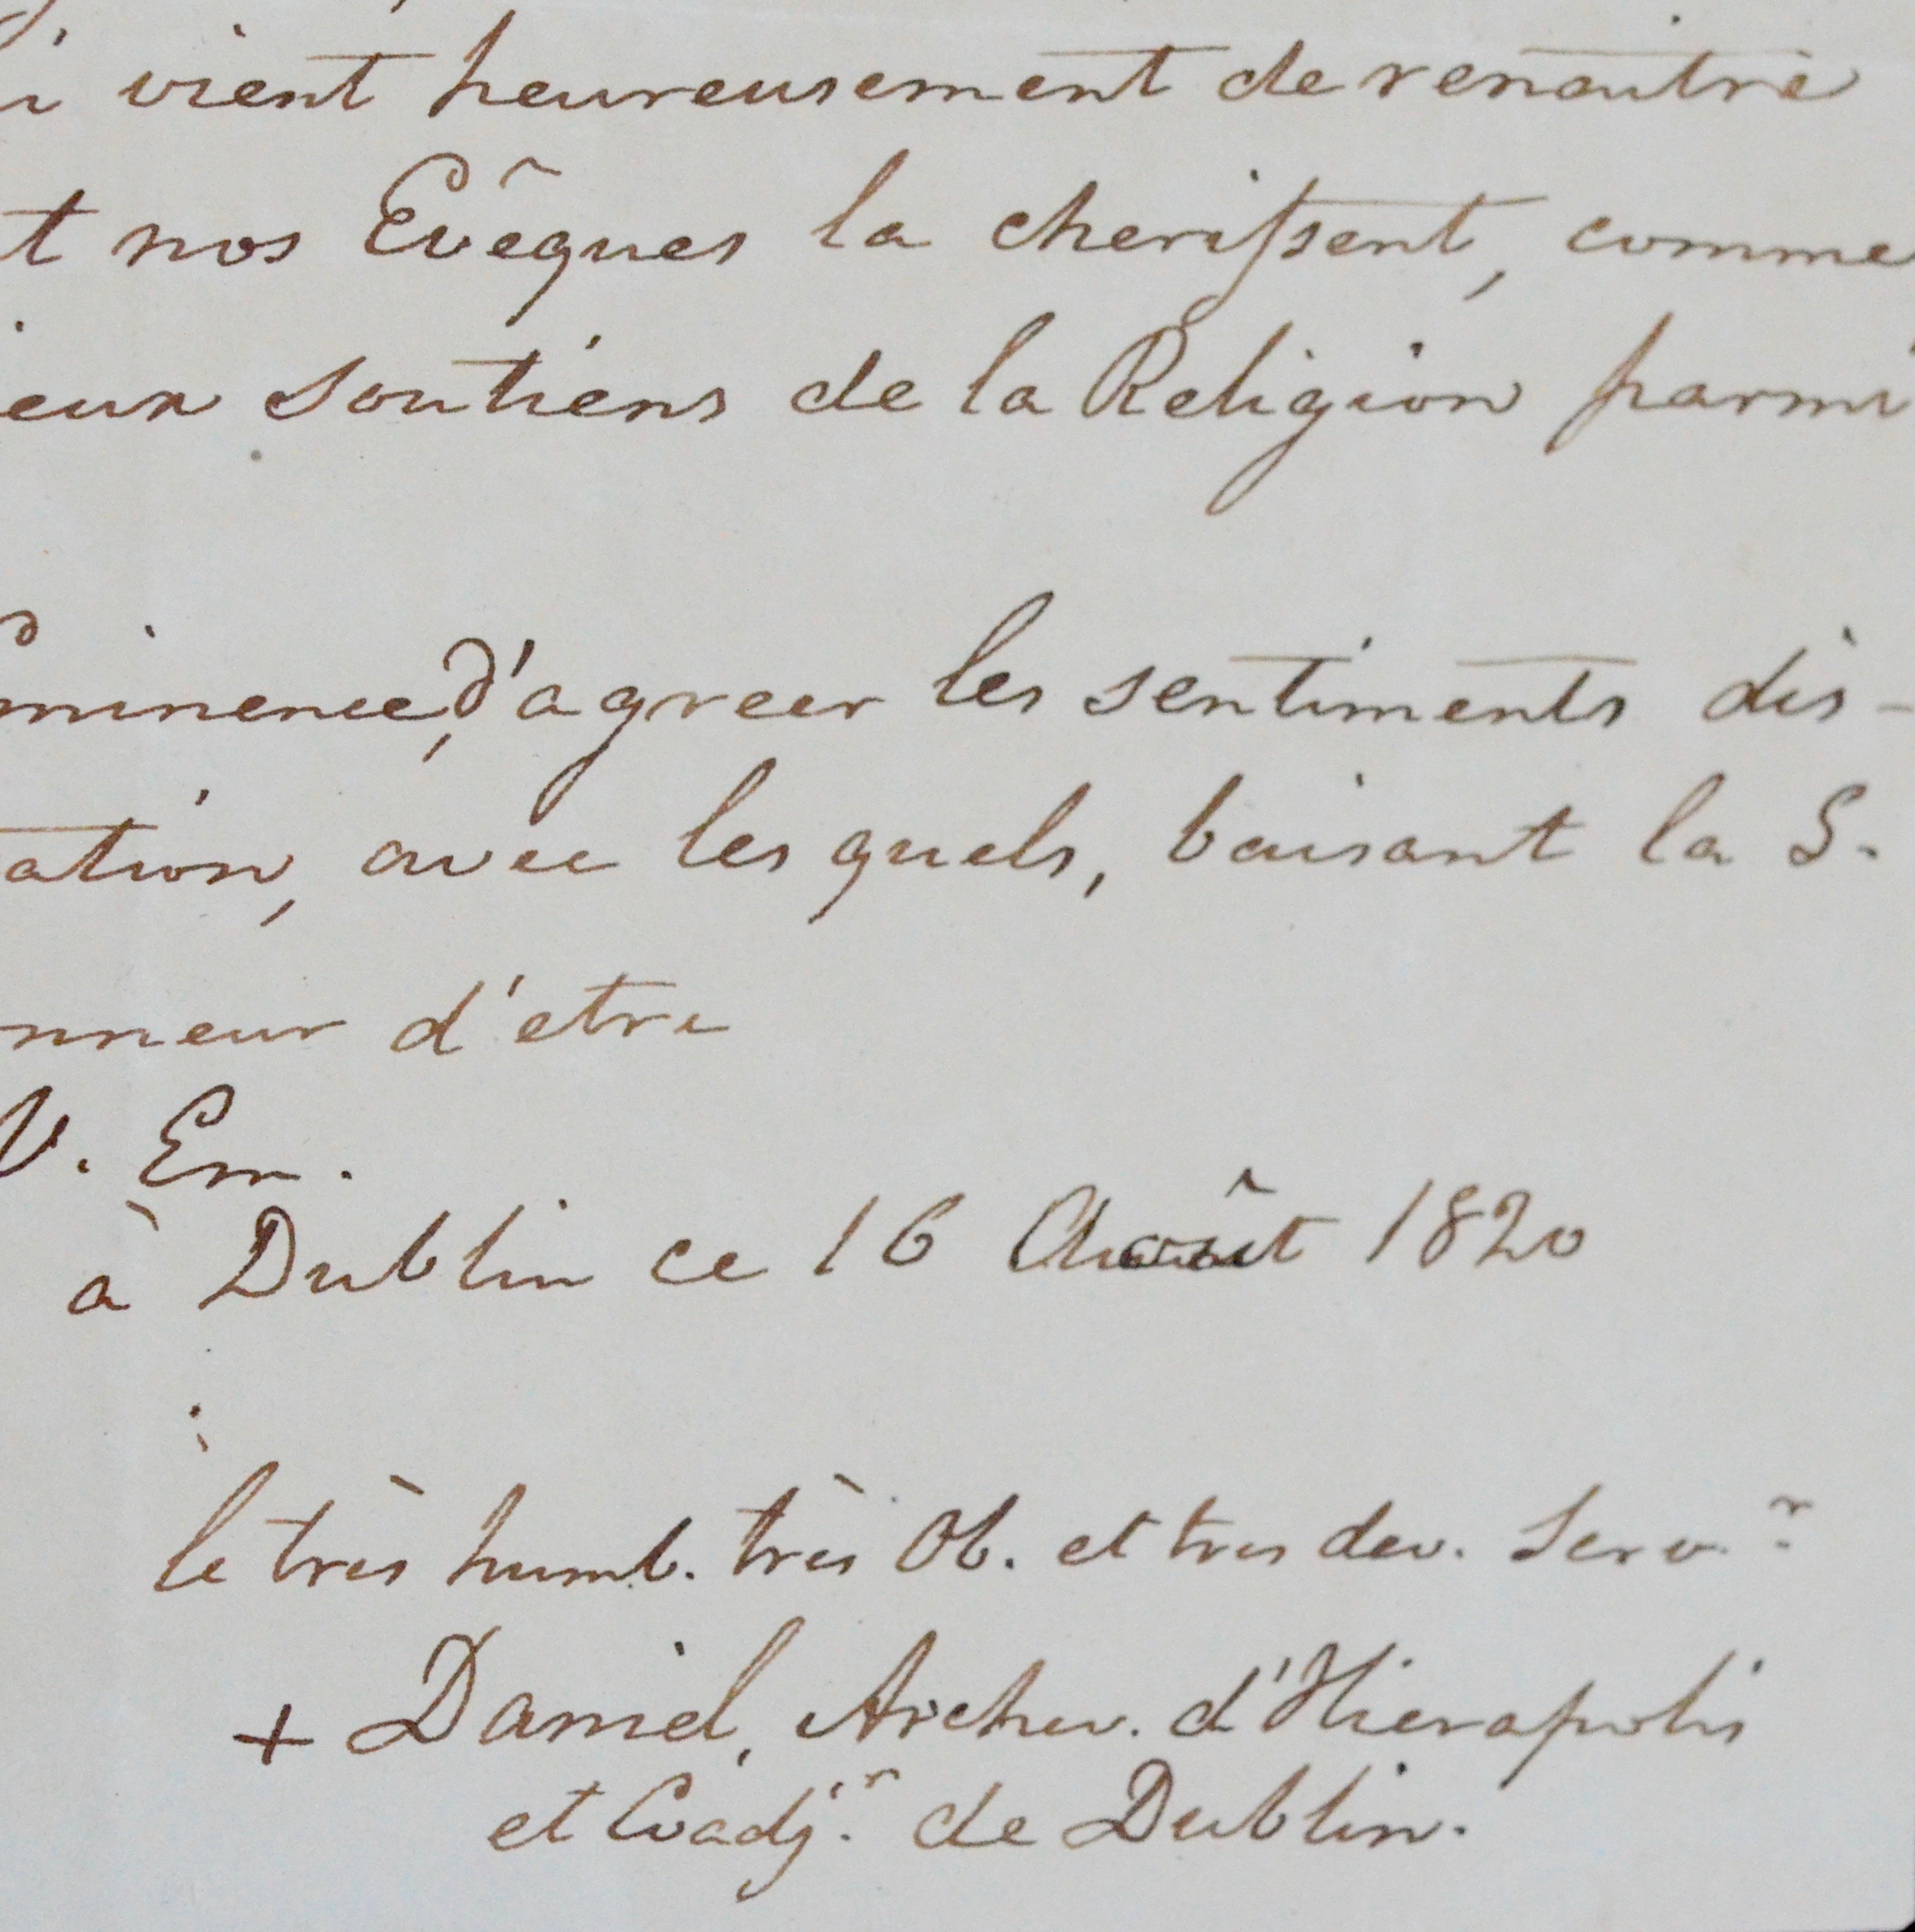 i vient heureusement de renaitre
t nos Evêques la cherissent, comme
eux soutiens de la Religion parmi
minence, d'agreer les sentiments dis-
ation, avec les quels, baisant la S.
nneur d'etre
V. Em.
à Dublin ce 16 Août 1820
le très humb. très Ob. et tres dev. Serv.r
+ Daniel, Archev. d'Hierapolis
et Coadj.r de Dublin.